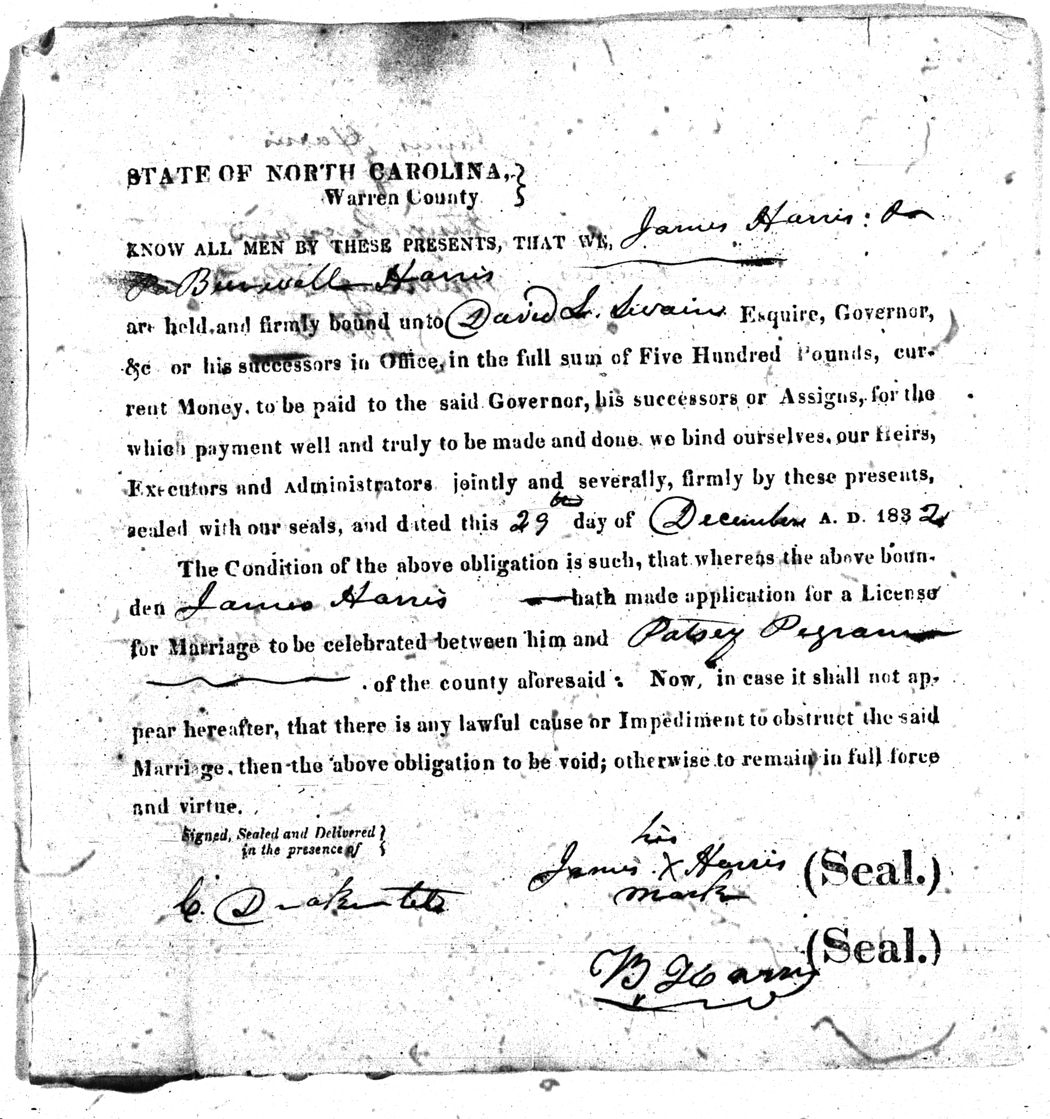 STATE OF NORTH CAROLINA,
Warren County
KNOW ALL MEN BY THESE PRESENTS, THAT WE, James Harris: &
Burwell Harris
are held and firmly bound unto David L. Swain Esquire, Governor,
&c or his successors in Office, in the full sum of Five Hundred Pounds, cur-
rent Money, to be paid to the said Governor, his successors or Assigns, for the
which payment well and truly to be made and done, we bind ourselves, our Heirs,
Executors and Administrators jointly and severally, firmly by these presents,
sealed with our seals, and dated this 29th day of December A. D. 1832
The Condition of the above obligation is such, that whereas the above boun-
den James Harris hath made application for a License
for Marriage to be celebrated between him and Patsey Pegram
of the county aforesaid: Now, in case it shall not ap-
pear hereafter, that there is any lawful cause or Impediment to obstruct the said
Marriage, then the above obligation to be void; otherwise to remain in full force
and virtue.
Signed, Sealed and Delivered
in the presence of
his
James X Harris (Seal.)
mark
C. Drake
B Harris (Seal.)